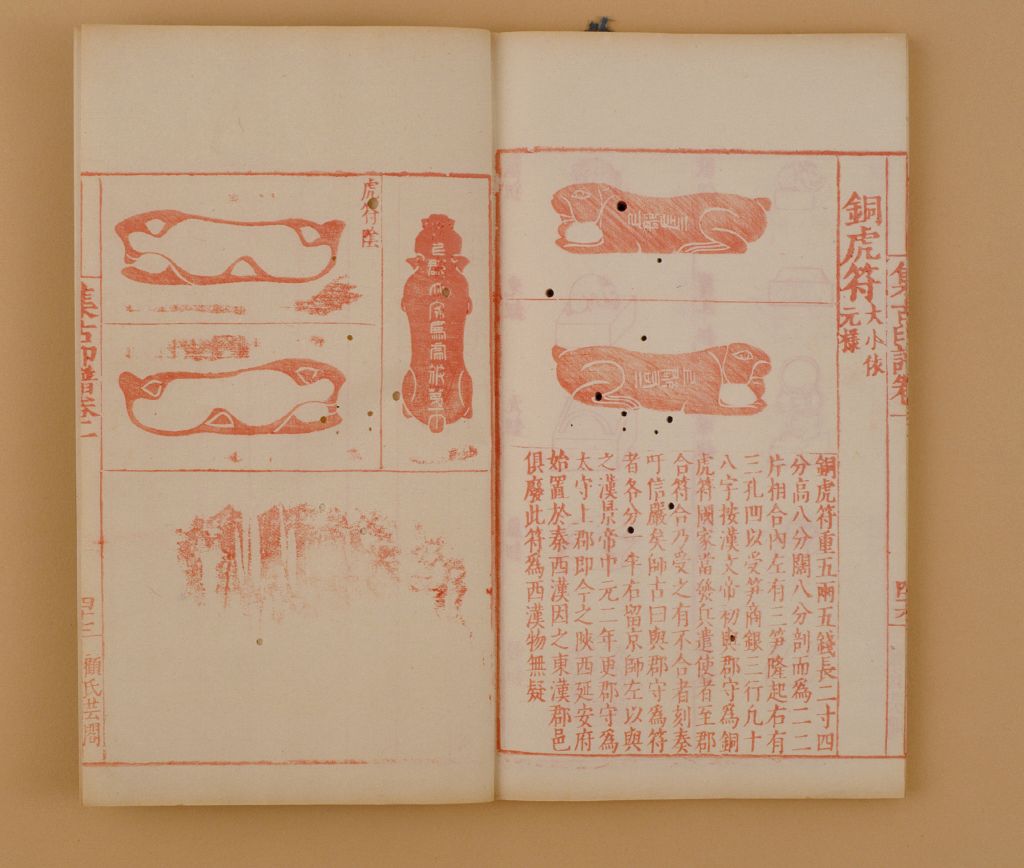 銅虎符
大小依
元樣
銅虎符重五兩五錢長二寸四
分高八分闊八分剖而爲二二
片相合內左有三笋隆起右有
三孔凹以受笋商銀三行凢十
八字按漢文帝初與郡守爲銅
虎符國家當發兵遣使者至郡
合符符合乃受之有不合者刻奏
吁信嚴矣師古曰與郡守爲符
者各分一半右留京師左以與
之漢景帝中元二年更郡守爲
太守上郡即今之陝西延安府
始置於秦西漢因之東漢郡邑
俱廢此符爲西漢物無疑
虎符陰
集古印譜卷二
四十三
顧氏芸閣